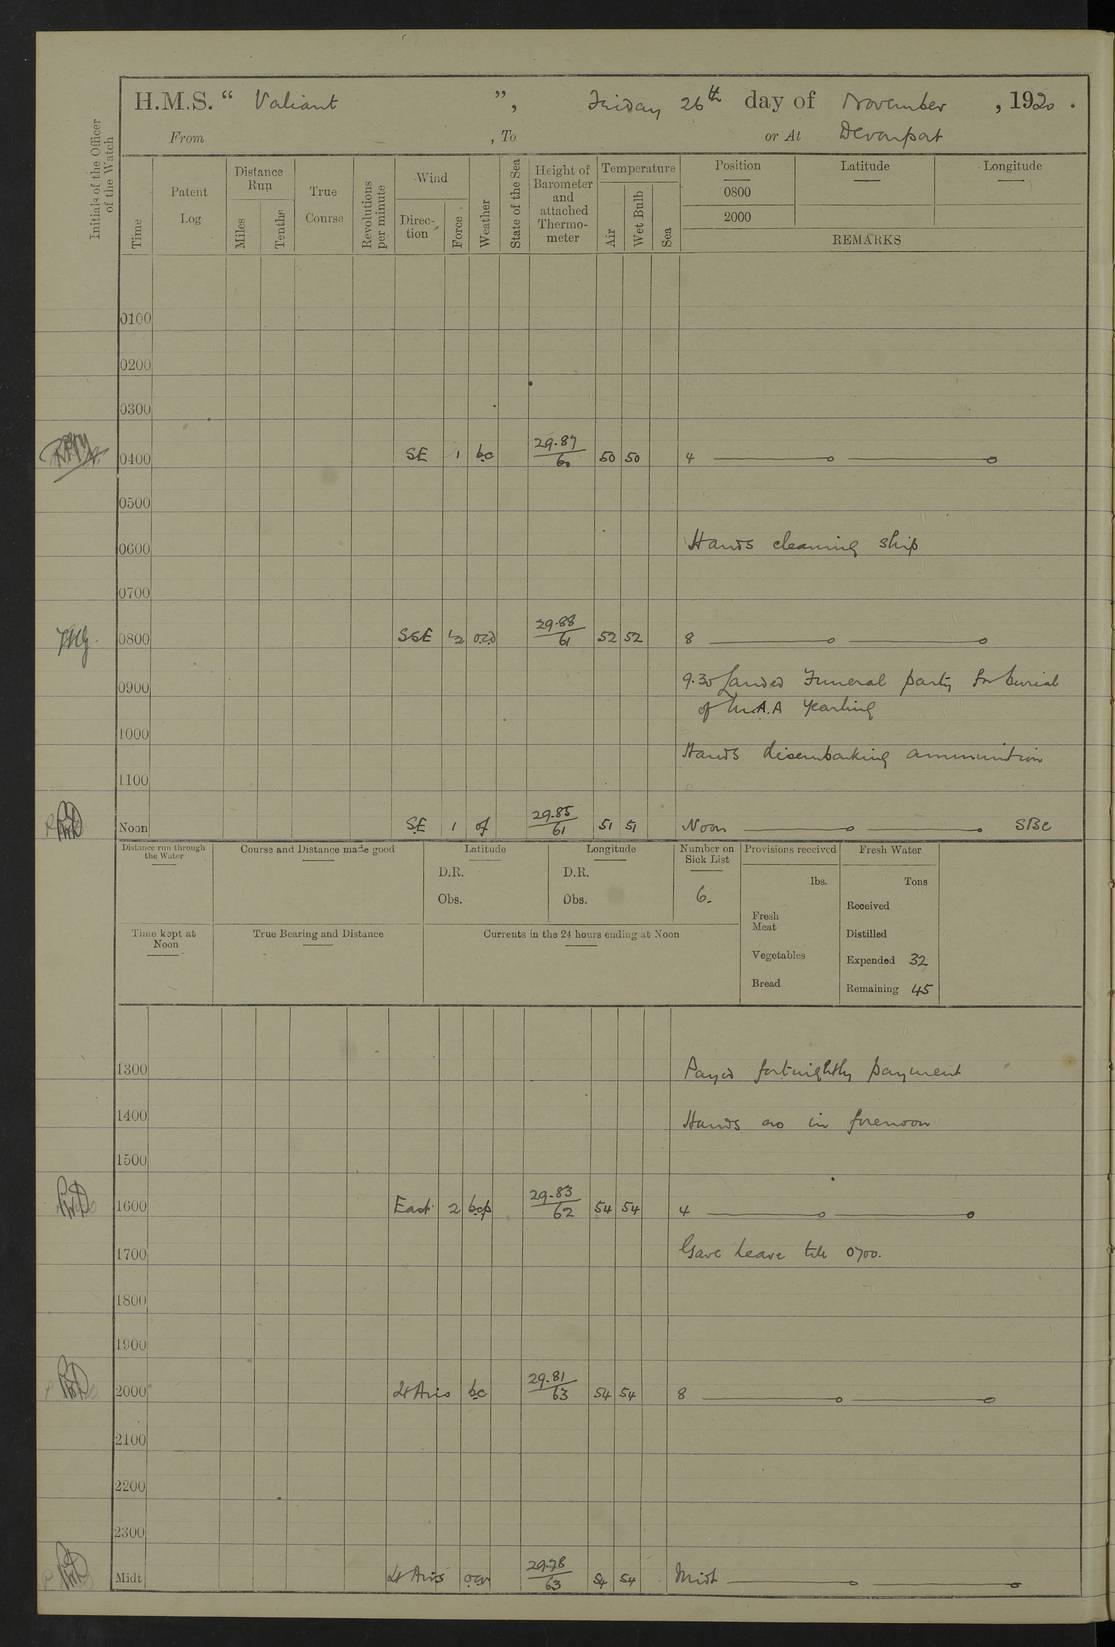 H.M.S. “ Valiant ”, Friday 26th day of November , 1920 .
From , To or At Devonport
Initials of the Officer of the Watch
Time
Patent Log
Distance Run
Miles
Tenths
True Course
Revolutions per minute
Wind
Direc-tion
Force
Weather
State of the Sea
Height of Barometer and attached Thermo-meter
Temperature
Air
Wet Bulb
Sea
Position
Latitude
Longitude
0800
2000
REMARKS
0100
0200
0300
0400 SE 1 bc 29.87/60 50 50 4
0500
0600 Hands cleaning ship
0700
0800 SSE 1/2 52 52 29.88/61 8
0900 9.30 Landed Funeral party for burial
of M.A.A Yearling
1000 Hands disembarking ammunition
1100
Noon SE 1 of 29.85/61 51 51 Noon SBC
Distance run through the Water
Course and Distance made good
Latitude
D.R.
Obs.
Longitude
D.R.
Obs.
Number on Sick List
6.
Provisions received
lbs.
Fresh Meat
Vegetables
Bread
Fresh Water
Tons
Received
Distilled
Expended 32
Remaining 45
Time kept at Noon
True Bearing and Distance
Currents in the 24 hours ending at Noon
1300 Payed fortnightly payment
1400 Hands as in forenoon
1500
1600 East 2 bcp 29.83/62 54 54 4
1700 Gave leave till 0700.
1800
1900
2000 Lt Airs bc 29.81/63 54 54 8
2100
2200
2300
Midt Lt Airs 29.78/63 54 54 Midt